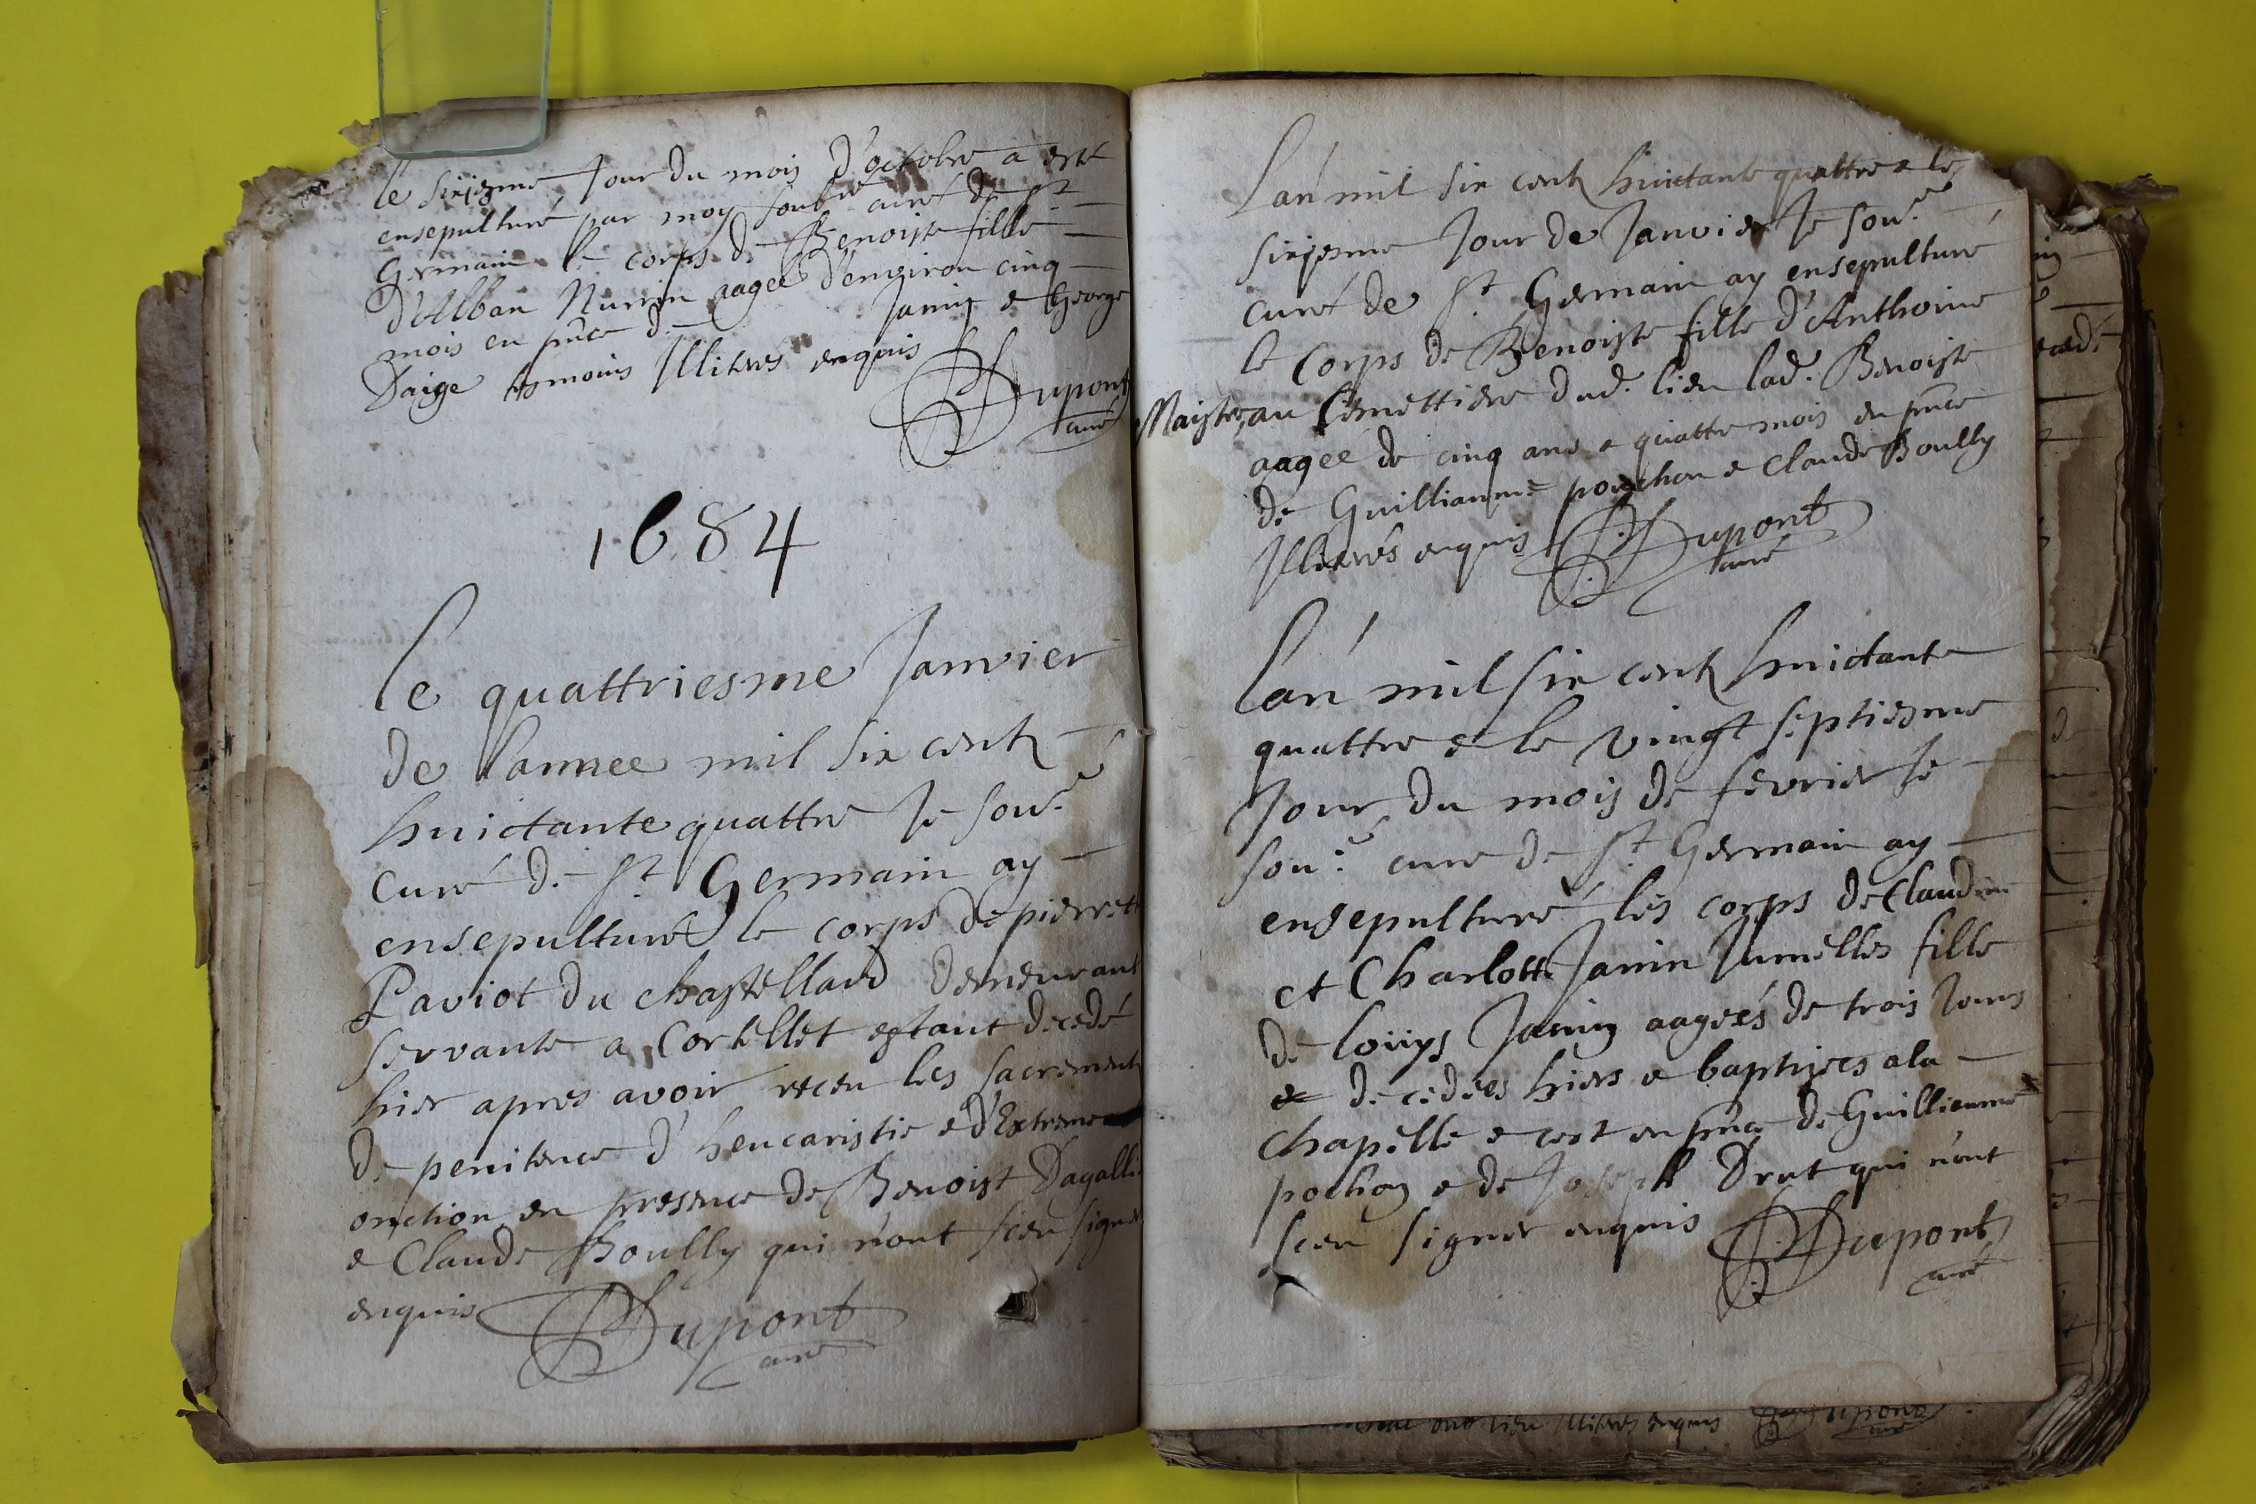 le sixiesme Jour du mois d'octobre a esté
ensepulturé par moy soub.né curé de St
Germain le corps de Benoiste fille
d'Alban Nurrin aagée d'environ cinq
mois en p̃nce de Janin e George
Daige tesmoins Illiterés enquis
Dupont
curé
1684
Le quattriesme Janvier
de lannee mil six cents
huictante quattre Je sou.né
curé de St Germain ay
ensepulturé le corps de pierrette
Paviot du chastellard demeurant
servante a Cortellet estant decedé
hier apres avoir receu les sacrements
de penitence d'heucaristie e d'Extreme
onction en presence de Benoist Dagallie
e Claude Boully qui n'ont sceu signer
enquis Dupont
curé
L'an mil six cents huictante quattre e le
sixiesme Jour de Janvier Je sou.né
curé de St Germain ay ensepulturé
le Corps de Benoiste fille d'Anthoine
Maistre, au Cemettiere dud. lieu lad. Benoiste
aagee de cinq ans e quattre mois en p̃nce
de Guilliaume pouchon e Claude Boully
Illiterés enquis Dupont
curé
L'an mil six cents huictante
quattre e le vingt septiesme
Jour du mois de febvrier Je
sou.né curé de St Germain ay
ensepulturé les corps de Claudine
et Charlotte Janin Jumelles fille
de Louys Janin aagees de trois Jours
e decedees hiers e baptisees a la
chapelle e cest en p̃nce de Guillieaume
pochon e de Joseph Drut qui n'ont
sceu signer enquis Dupont
curé
lieu Illiterés enquis Dupont
curé